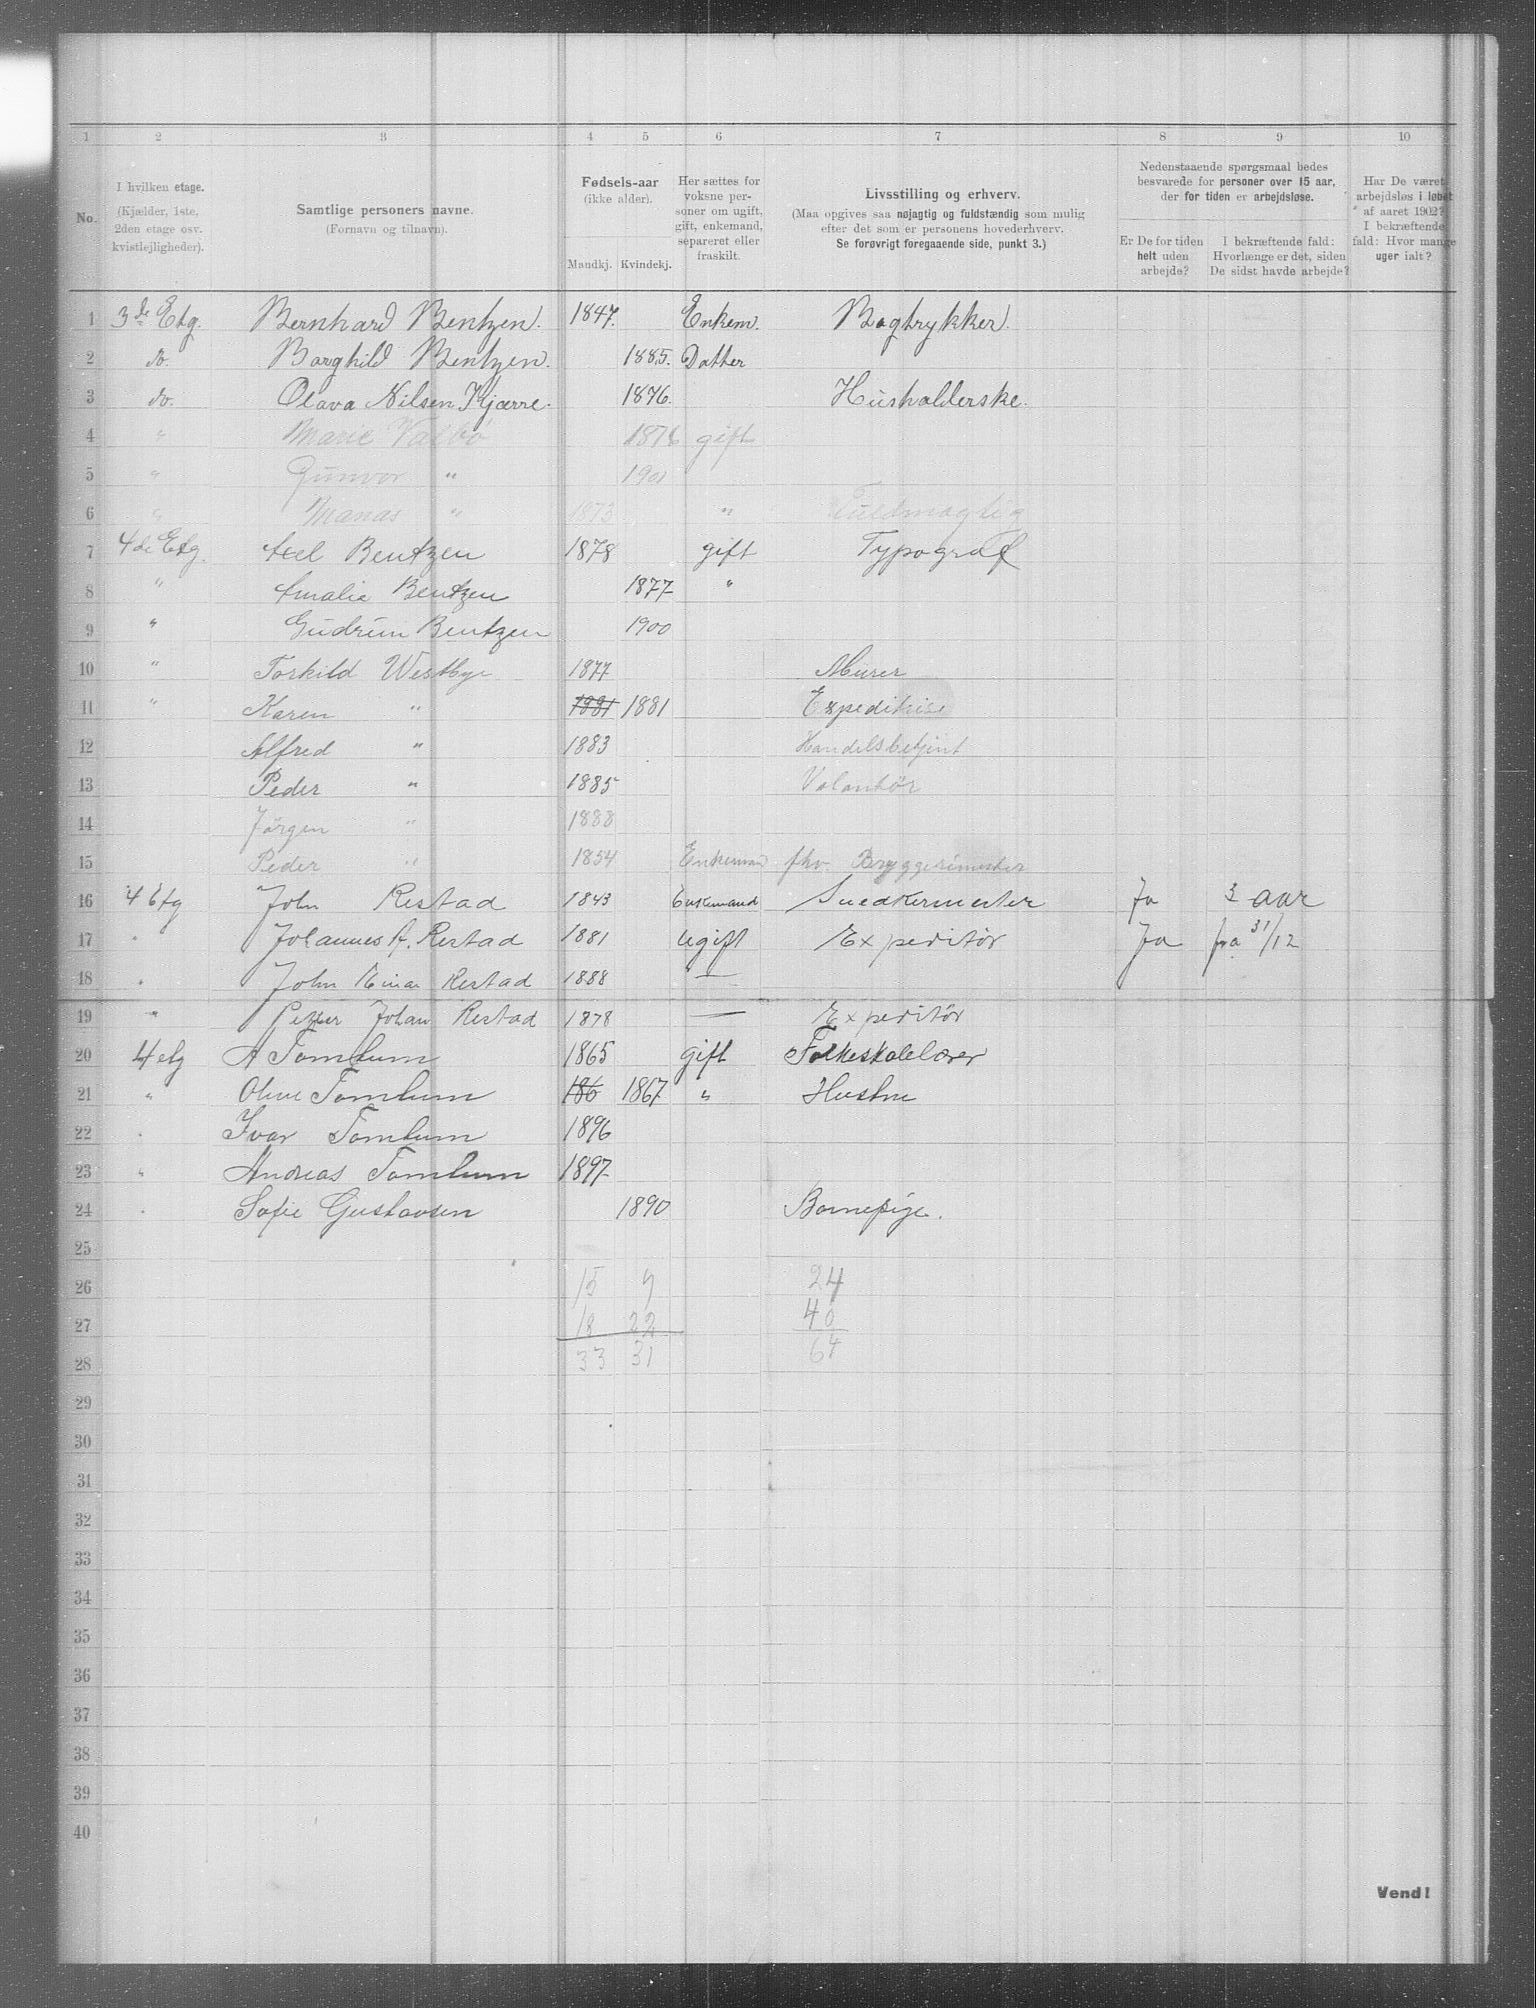 1 2 3 4 5 6 7 8 9 10
No.
I hvilken etage.
(Kjælder, 1ste,
2den etage osv.
kvistlejligheder).
Samtlige personers navne.
(Fornavn og tilnavn).
Fødsels-aar
(ikke alder).
Mandkj. Kvindekj.
Her sættes for
voksne per-
soner om ugift,
gift, enkemand,
separeret eller
fraskilt.
Livsstilling og erhverv.
(Maa opgives saa nøjagtig og fuldstændig som mulig
efter det som er personens hovederhverv.
Se forøvrigt foregaaende side, punkt 3.)
Nedenstaaende spørgsmaal bedes
besvarede for personer over 15 aar,
der for tiden er arbejdsløse.
Er De for tiden
helt uden
arbejde?
I bekræftende fald:
Hvorlænge er det, siden
De sidst havde arbejde?
Har De været
arbejdsløs i løbet
af aaret 1902?
I bekræftende
fald: Hvor mange
uger ialt?
1 3de Etg. Bernhard Bentzen. 1847. Enkem. Bogtrykker.
2 do. Borghild Bentzen. 1885. Datter
3 do. Olava Nilsen Kjærre. 1876. Husholderske.
4 " Marie Valbø 1876 gift
5 " Gunvor " 1901
6 " Manas " 1873 " Fuldmægtig
7 4de Etg. Axel Bentzen 1878 gift Typograf
8 " Amalie Bentzen 1877 "
9 " Gudrun Bentzen 1900
10 " Torkild Westbye 1877 Murer
11 " Karen " 1881 1881 Expeditrise
12 Alfred " 1883 Handelsbetjent
13 Peder " 1885 Volontør
14 Jørgen " 1888
15 Peder " 1854 Enkemand fhv. Bryggerimester
16 4 Etg John Restad 1843 Enkemand Snedkermester Ja 3 aar
17 " Johannes A. Restad 1881 Ugift Expeditør Ja fra 31/12
18 " John Einar Restad 1888 —
19 " Petter Johan Restad 1878 — Expeditør
20 4 etg A Tomlum 1865 gift Folkeskolelærer
21 " Oline Tomlum 186 1867 " Hustru
22 " Ivar Tomlum 1896
23 " Andreas Tomlum 1897
24 " Sofie Gustavsen 1890 Barnepige.
25
26 15 9 24
27 18 22 40
28 33 31 64
29
30
31
32
33
34
35
36
37
38
39
40
Vend!